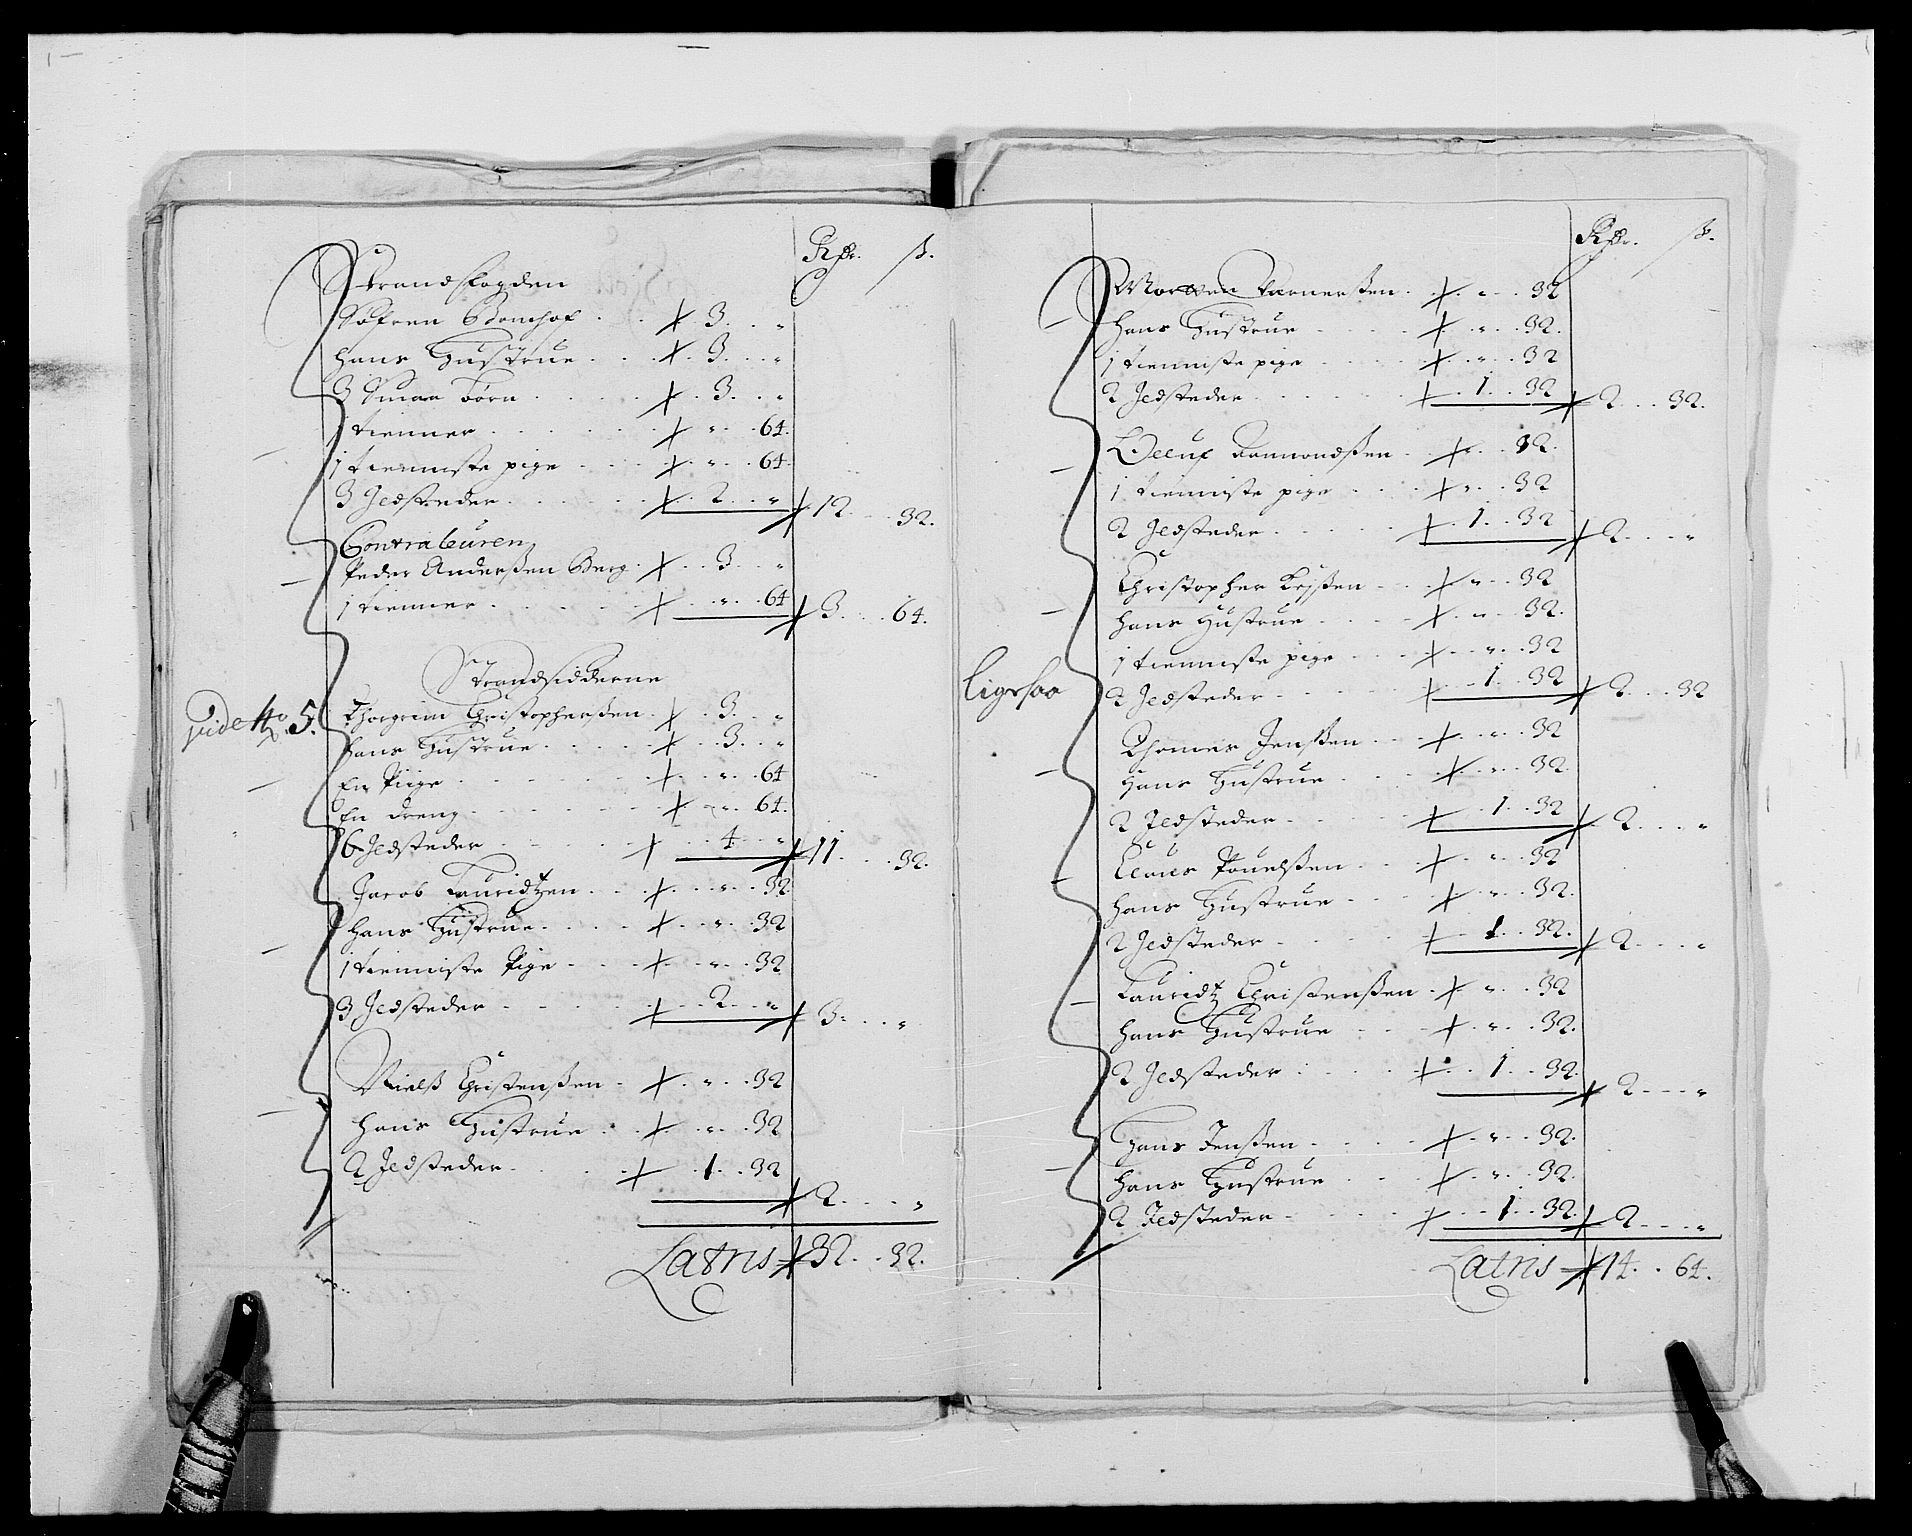 Rdr. ß.
Strandfogden
Søfren Bomhof . . + . 3 . . „
hans Hustrue . . . + . 3 . . „
3 Smaa børn . . . + . . 3 . . „
1 tienner . . . + . „ . . 64.
1 tienniste pige . . . + . „ . . 64.
3 Ildsteder . . . + . 2 . . „ + 12 . . . 32.
Contraleuren
Peder Anderßen Berg . + . . 3 . . „
1 tienner . . . + . . „ . . 64 + 3 . . . 64.
Strandsidderne
vide No 5. Thorgrim Christopherßen . + . 3 . . „
hans Hustrue . . . + . . 3 . . „
En Piige . . . + . . „ . . 64
En dreng . . . + . . „ . . 64.
6 Ildsteder . . . + . . 4 . . „ + 11 . . . 32.
Jacob Lauridtzen . . . + . . „ . . 32
hans Hustrue . . . + . . „ . . 32
1 tienniste Pige . . . + . . „ . . 32
3 Ildsteder . . . + . . 2 . . „ + 3 . . . „
Nielß Christenßen . + . „ . . 32
hans Hustrue . . + . . „ . . 32
2 Ildsteder . . . + . 1 . . 32 + 2 . . . „
Latris + 32 . . 32.
Rdr. ß.
Morten . + . „ . . 32
hans Hustrue . . . + . „ . . 32.
1 tienniste pige . . . + . „ . . 32
2 Ildsteder . . . + . 1 . . 32 + 2 . . . 32.
Oeluf . + . „ . . 32.
1 tienniste pige . . . + . „ . . 32
2 Ildsteder . . . + . 1 . . 32 + 2 . . . „
Christopher . . + . „ . . 32
hans Hustrue . . . + . „ . . 32.
1 tienniste pige . . . + . . „ . . 32
ligesaa 2 Ildsteder . . . + . . 1 . . 32 + 2 . . . 32
Thomes Jenßen . . + . . „ . . 32
Hans Hustrue . . . + . . „ . . 32.
2 Ildsteder . . . + . . 1 . . 32 + 2 . . . „
Claus Pouelßen . . + . . „ . . 32
hans Hustrue . . . + . . „ . . 32.
2 Ildsteder . . . + . . 1 . . 32. + 2 . . . „
Lauridtz Christenßen . + . „ . . 32
hans Hustrue . . . + . „ . . 32.
2 Ildsteder . . . + . . 1 . . 32. + 2 . . . „
Hans Jenßen . . . + . „ . . 32.
hans Hustrue . . . + . . „ . . 32.
2 Ildsteder . . . + . . 1 . . 32. + 2 . . . „
Latris + 14 . . 64.